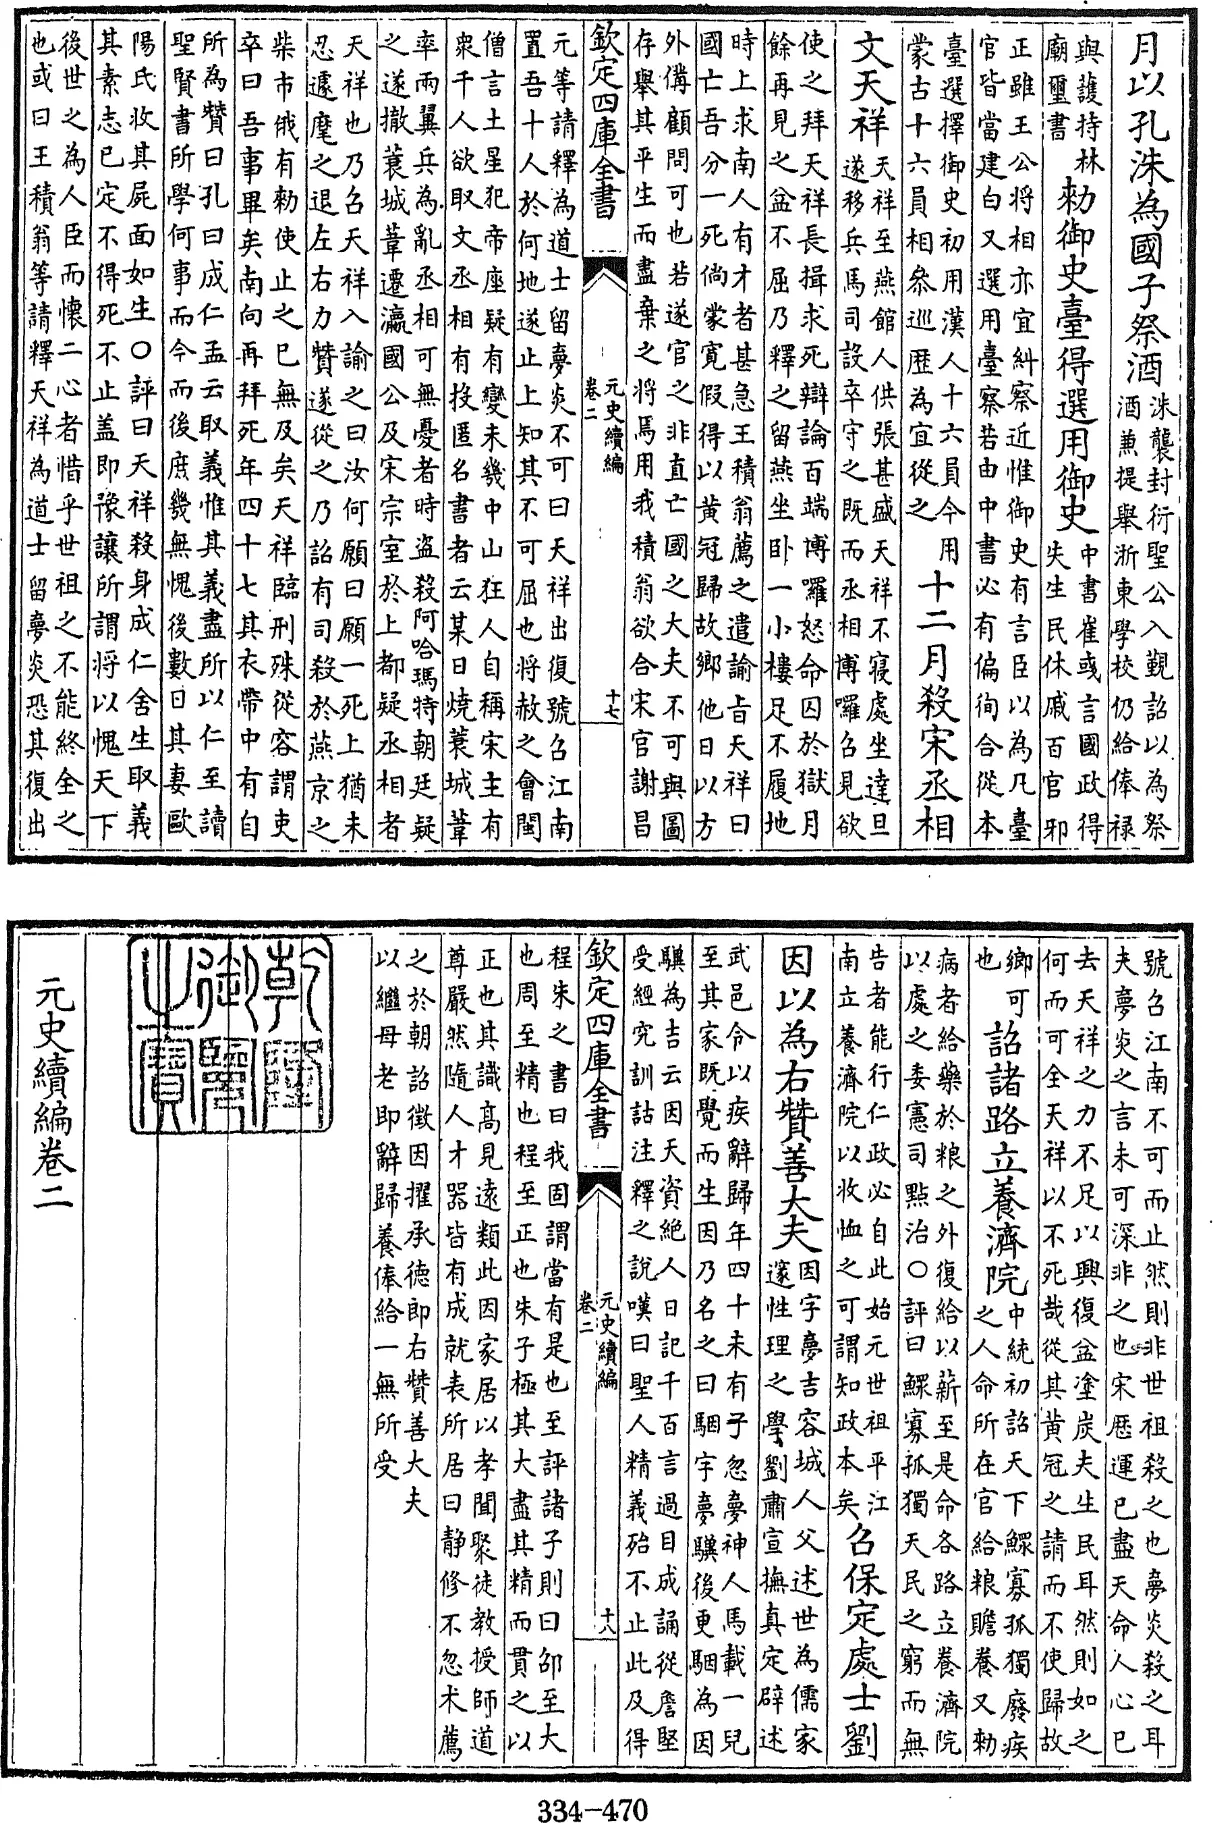 月以孔洙為國子祭酒
洙襲封衍聖公入覲詔以為祭
酒兼提舉浙東學校仍給俸禄
與護持林
廟璽書
勑御史臺得選用御史
中書崔彧言國政得
失生民休戚百官邪
正雖王公將相亦宜糾察近惟御史有言臣以為凡臺
官皆當建白又選用臺察若由中書必有偏徇合從本
臺選擇御史初用漢人十六員今用
蒙古十六員相叅巡歴為宜從之
十二月殺宋丞相
文天祥
天祥至燕館人供張甚盛天祥不寝處坐達旦
遂移兵馬司設卒守之既而丞相博囉召見欲
使之拜天祥長揖求死辯論百端博囉怒命囚於獄月
餘再見之益不屈乃釋之留燕坐卧一小樓足不履地
時上求南人有才者甚急王積翁薦之遣諭旨天祥曰
國亡吾分一死倘蒙寛假得以黄冠歸故鄉他日以方
外備顧問可也若遂官之非直亡國之大夫不可與圖
存舉其平生而盡棄之將焉用我積翁欲合宋官謝昌
欽定四庫全書
元史續編
卷二
十七
元等請釋為道士留夢炎不可曰天祥出復號召江南
置吾十人於何地遂止上知其不可屈也將赦之會閩
僧言土星犯帝座疑有變未幾中山狂人自稱宋主有
衆千人欲取文丞相有投匿名書者云某日燒蓑城葦
率兩翼兵為亂丞相可無憂者時盗殺阿哈瑪特朝廷疑
之遂撤蓑城葦遷瀛國公及宋宗室於上都疑丞相者
天祥也乃召天祥入諭之曰汝何願曰願一死上猶未
忍遽麾之退左右力贊遂從之乃詔有司殺於燕京之
柴市俄有勅使止之已無及矣天祥臨刑殊從容謂吏
卒曰吾事畢矣南向再拜死年四十七其衣帶中有自
所為贊曰孔曰成仁孟云取義惟其義盡所以仁至讀
聖賢書所學何事而今而後庶幾無愧後數日其妻歐
陽氏收其屍面如生○評曰天祥殺身成仁舍生取義
其素志已定不得死不止盖即豫讓所謂將以愧天下
後世之為人臣而懷二心者惜乎世祖之不能終全之
也或曰王積翁等請釋天祥為道士留夢炎恐其復出
號召江南不可而止然則非世祖殺之也夢炎殺之耳
夫夢炎之言未可深非之也宋歴運已盡天命人心已
去天祥之力不足以興復益塗炭夫生民耳然則如之
何而可全天祥以不死哉從其黄冠之請而不使歸故
鄉可
也
詔諸路立養濟院
中統初詔天下鰥寡孤獨廢疾
之人命所在官給粮贍養又勅
病者給藥於粮之外復給以薪至是命各路立養濟院
以處之委憲司㸃治○評曰鰥寡孤獨天民之窮而無
告者能行仁政必自此始元世祖平江
南立養濟院以收恤之可謂知政本矣
召保定處士劉
因以為右贊善大夫
因字夢吉容城人父述世為儒家
邃性理之學劉肅宣撫真定辟述
武邑令以疾辭歸年四十未有子忽夢神人馬載一兒
至其家既覺而生因乃名之曰駰字夢驥後更駰為因
驥為吉云因天資絶人日記千百言過目成誦從詹堅
受經究訓詁注釋之說嘆曰聖人精義殆不止此及得
欽定四庫全書
元史續編
卷二
十八
程朱之書曰我固謂當有是也至評諸子則曰邵至大
也周至精也程至正也朱子極其大盡其精而貫之以
正也其識高見遠類此因家居以孝聞聚徒教授師道
尊嚴然隨人才器皆有成就表所居曰静修不忽木薦
之於朝詔徵因擢承德郎右贊善大夫
以繼母老即辭歸養俸給一無所受
乾隆御覽之寶
元史續編卷二
334-470